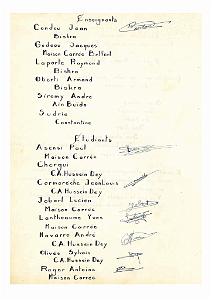 Enseignants
Condou Jean
Biskra
Gadeau Jacques
Maison Carrée Belfort
Laporte Raymond
Biskra
Oberti Armand
Biskra
Siremy André
Ain Beida
Sudrie
Constantine
Etudiants
Ascensi Paul
Maison Carrée
Chergui
C.A. Hussein Dey
Cormareche Jean Louis
C.A. Hussein Dey
Jobert Lucien
Maison Carrée
Lantheaume Yves
Maison Carrée
Navarro André
C.A. Hussein Dey
Olives Sylvain
C.A. Hussein Dey
Roger Antoine
Maison Carrée